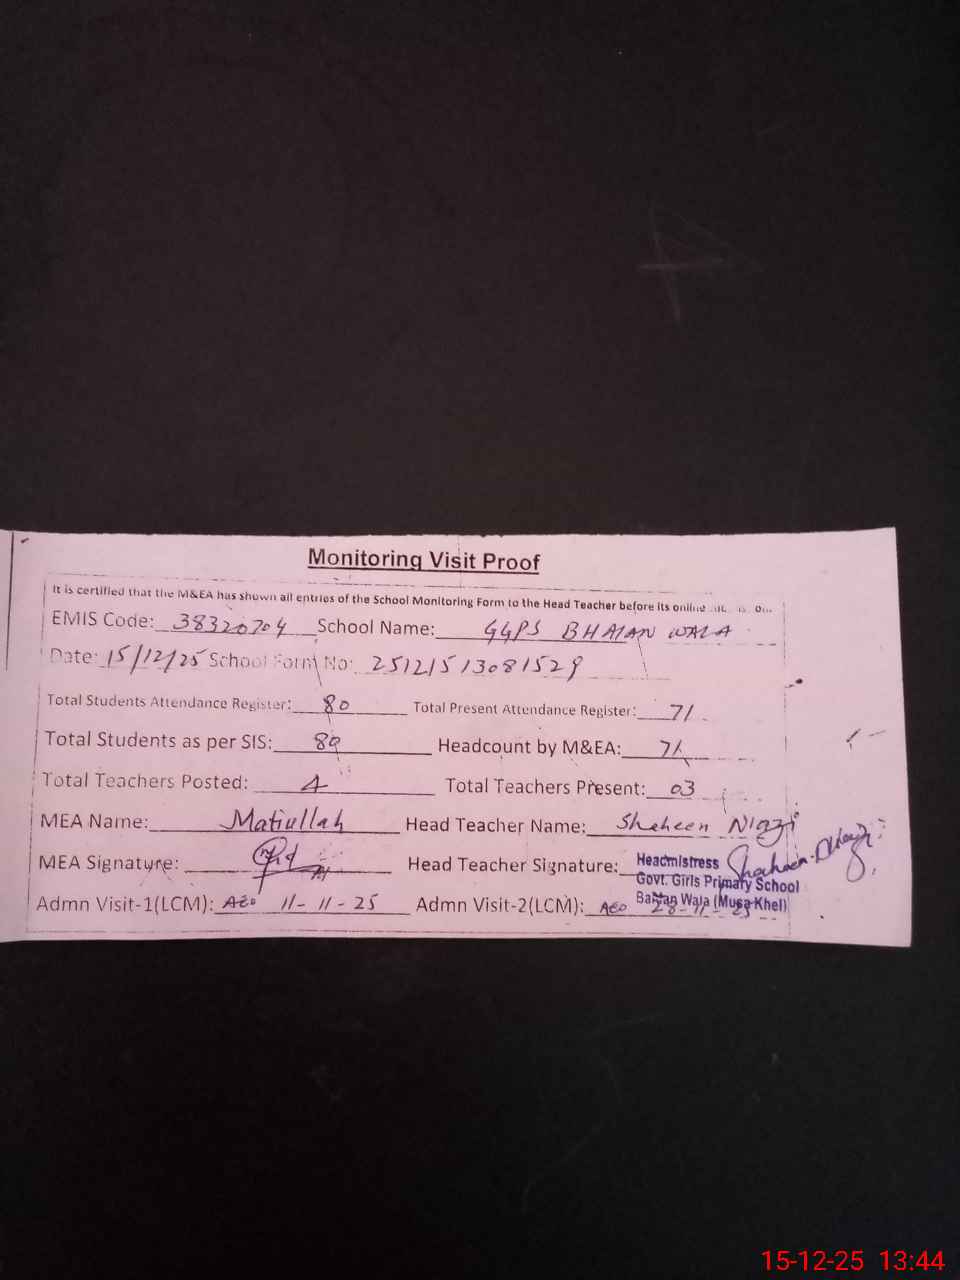 Monitoring Visit Proof
It is certified that the M&EA has shown all entries of the School Monitoring Form to the Head Teacher before its online
EMIS Code: 38320704 School Name: GGPS BHATAN WALA
Date: 15/12/25 School Form No: 25121513081529
Total Students Attendance Register: 80 Total Present Attendance Register: 71
Total Students as per SIS: 80 Headcount by M&EA: 71
Total Teachers Posted: 4 Total Teachers Present: 03
MEA Name: Matiullah Head Teacher Name: Shaheen Niazi
MEA Signature: Head Teacher Signature: Headmistress Shaheen
Govt. Girls Primary School
Admn Visit-1(LCM): AEO 11-11-25 Admn Visit-2(LCM): AEO 28-11-25
Wala (Musa Khel)
15-12-25 13:44